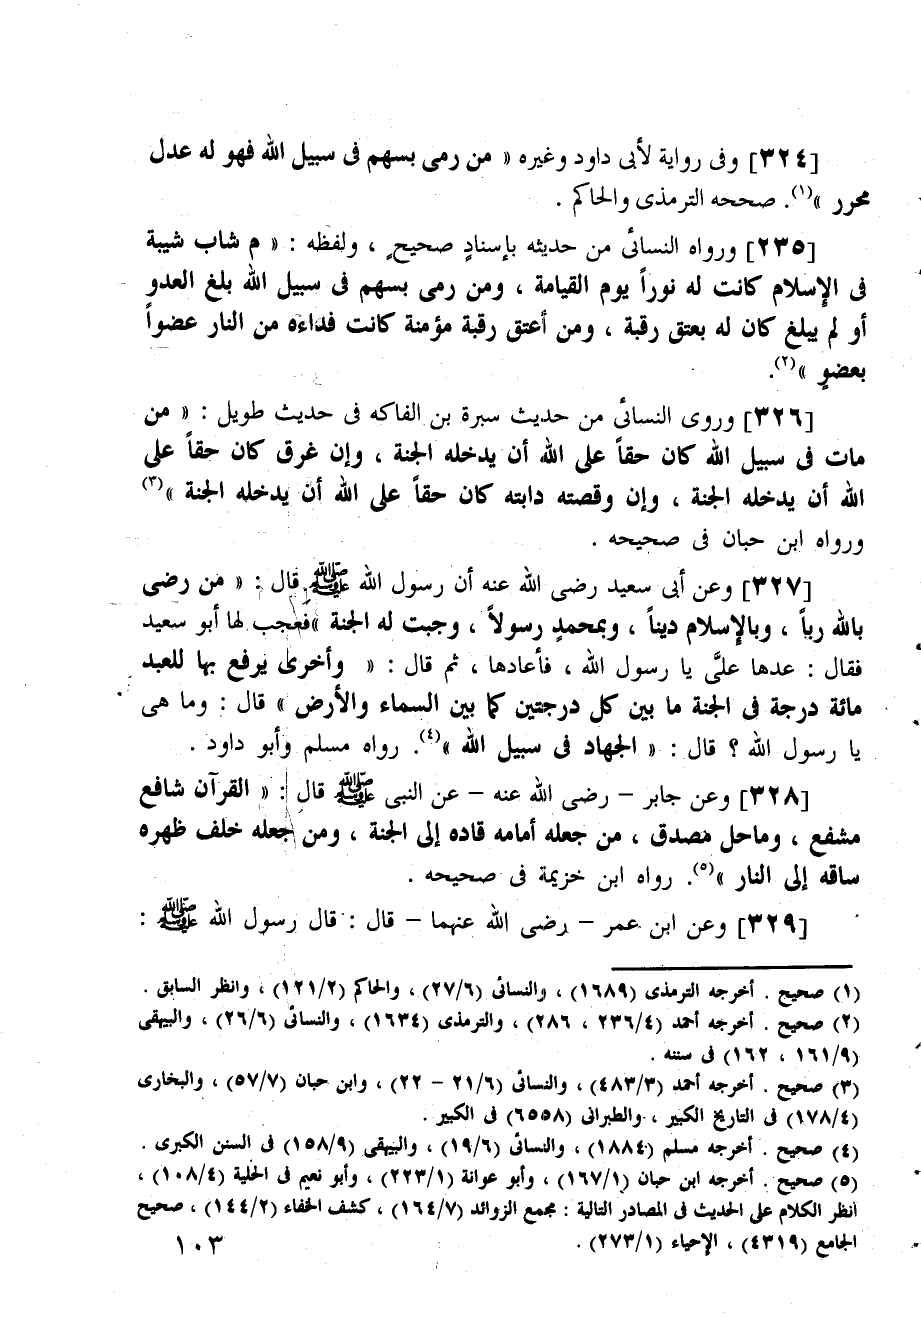 [٣٢٤] وفى رواية لأبى داود وغيره « من رمى بسهم فى سبيل الله فهو له عدل
محرر »(١). صححه الترمذى والحاكم .
[٢٣٥] ورواه النسائى من حديثه بإسنادٍ صحيح ، ولفظه : « م شاب شيبة
فى الإسلام كانت له نوراً يوم القيامة ، ومن رمى بسهم فى سبيل الله بلغ العدو
أو لم يبلغ كان له بعتق رقبة ، ومن أعتق رقبة مؤمنة كانت فداءه من النار عضواً
بعضوٍ »(٢).
[٣٢٦] وروى النسائى من حديث سبرة بن الفاكه فى حديث طويل : « من
مات فى سبيل الله كان حقاً على الله أن يدخله الجنة ، وإن غرق كان حقاً على
الله أن يدخله الجنة ، وإن وقصته دابته كان حقاً على الله أن يدخله الجنة »(٣)
ورواه ابن حبان فى صحيحه .
[٣٢٧] وعن أبى سعيد رضى الله عنه أن رسول الله ﷺ قال : « من رضى
بالله رباً ، وبالإسلام ديناً ، وبمحمدٍ رسولاً ، وجبت له الجنة » فعجب لها أبو سعيد
فقال : عدها علىَّ يا رسول الله ، فأعادها ، ثم قال : « وأخرى يرفع بها للعبد
مائة درجة فى الجنة ما بين كل درجتين كما بين السماء والأرض » قال : وما هى
يا رسول الله ؟ قال : « الجهاد فى سبيل الله »(٤). رواه مسلم وأبو داود .
[٣٢٨] وعن جابر – رضى الله عنه – عن النبى ﷺ قال : « القرآن شافع
مشفع ، وماحل مصدق ، من جعله أمامه قاده إلى الجنة ، ومن جعله خلف ظهره
ساقه إلى النار »(٥). رواه ابن خزيمة فى صحيحه .
[٣٢٩] وعن ابن عمر – رضى الله عنهما – قال : قال رسول الله ﷺ :
(١) صحيح . أخرجه الترمذى (١٦٨٩) ، والنسائى (٢٧/٦) ، والحاكم (١٢١/٢) ، وانظر السابق .
(٢) صحيح . أخرجه أحمد (٢٣٦/٤ ، ٢٨٦) ، والترمذى (١٦٣٤) ، والنسائى (٢٦/٦) ، والبيهقى
(١٦١/٩ ، ١٦٢) فى سننه .
(٣) صحيح . أخرجه أحمد (٤٨٣/٣) ، والنسائى (٢١/٦ – ٢٢) ، وابن حبان (٥٧/٧) ، والبخارى
(١٧٨/٤) فى التاريخ الكبير ، والطبرانى (٦٥٥٨) فى الكبير .
(٤) صحيح . أخرجه مسلم (١٨٨٤) ، والنسائى (١٩/٦) ، والبيهقى (١٥٨/٩) فى السنن الكبرى .
(٥) صحيح . أخرجه ابن حبان (١٦٧/١) ، وأبو عوانة (٢٢٣/١) ، وأبو نعيم فى الحلية (١٠٨/٤) ،
انظر الكلام على الحديث فى المصادر التالية : مجمع الزوائد (١٦٤/٧) ، كشف الخفاء (١٤٤/٢) ، صحيح
الجامع (٤٣١٩) ، الإحياء (٢٧٣/١) .
١٠٣